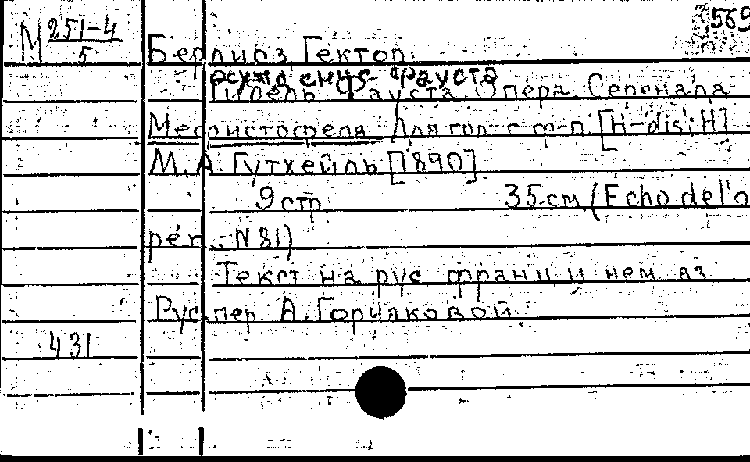 М 251-4 569
5
Берлиоз, Гектор.
осуждение Фауста
Гибель Фауста. Опера. Серенада
Мефистофеля. Для гол. с ф-п. [H-dis¹; H]
М. А. Гутхейль [1890]
9 стр. 35 см (Echo de l'o
pér. N 81)
Текст на рус. франц. и нем. яз.
Рус. пер. А. Горчаковой.
431